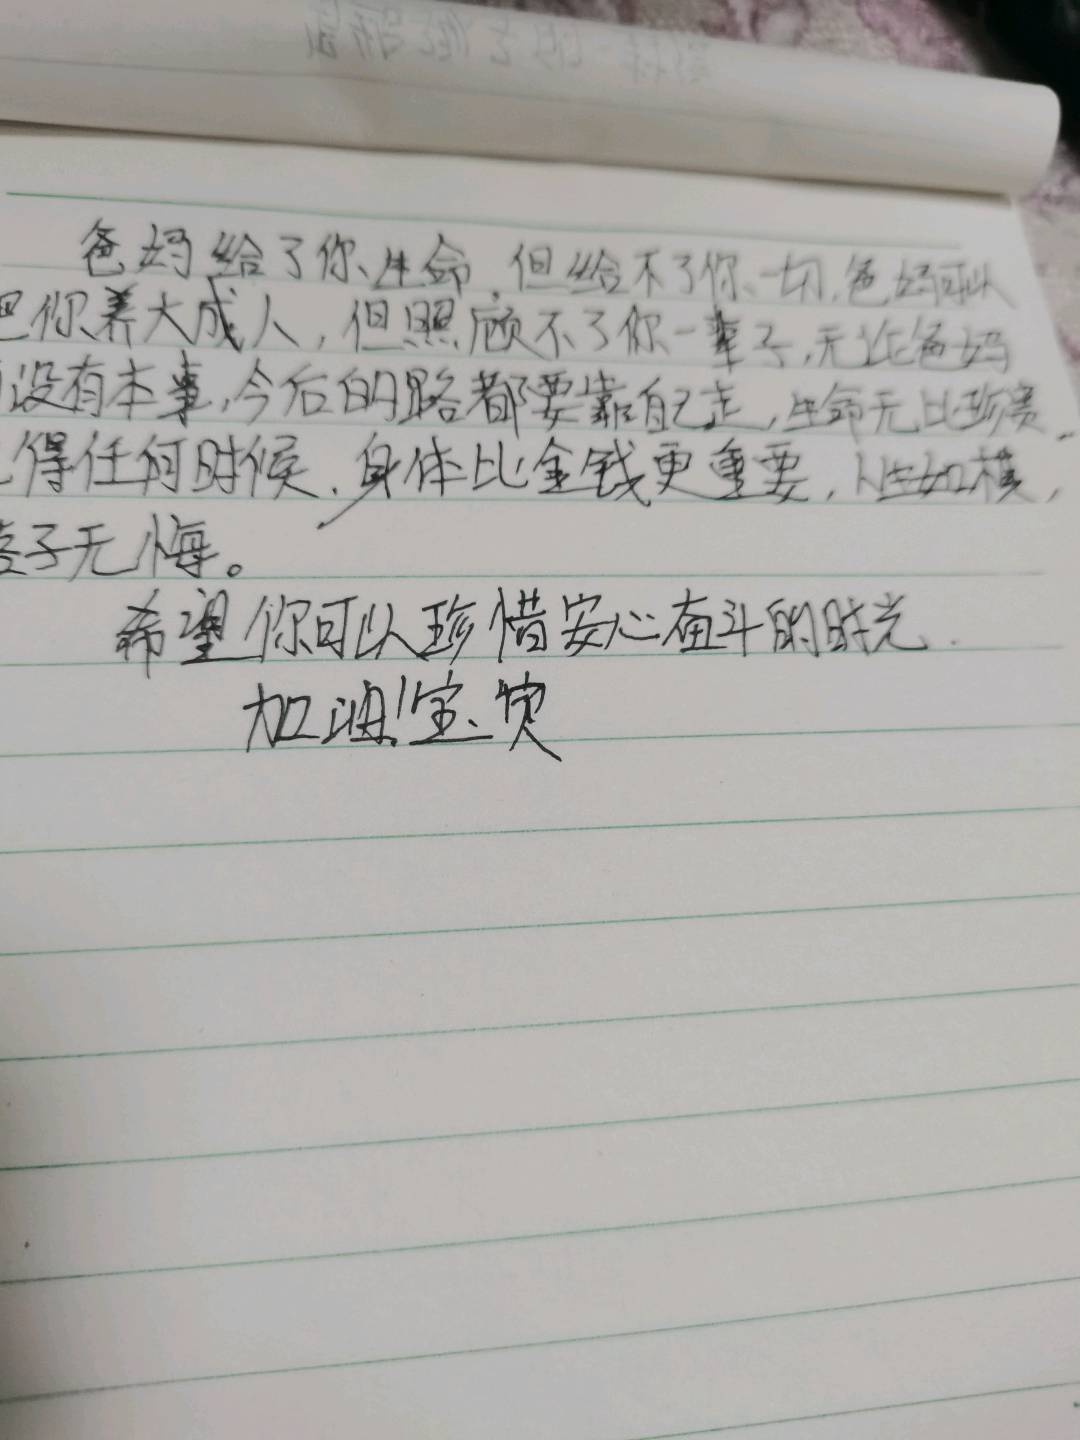 爸妈给了你生命,但给不了你一切,爸妈可以
把你养大成人,但照顾不了你一辈子,无论爸妈
没有本事,今后的路都要靠自己走,生命无比珍贵
得任何时候,身体比金钱更重要,人生如棋,
落子无悔。
希望你可以珍惜安心奋斗的时光.
加油!宝贝